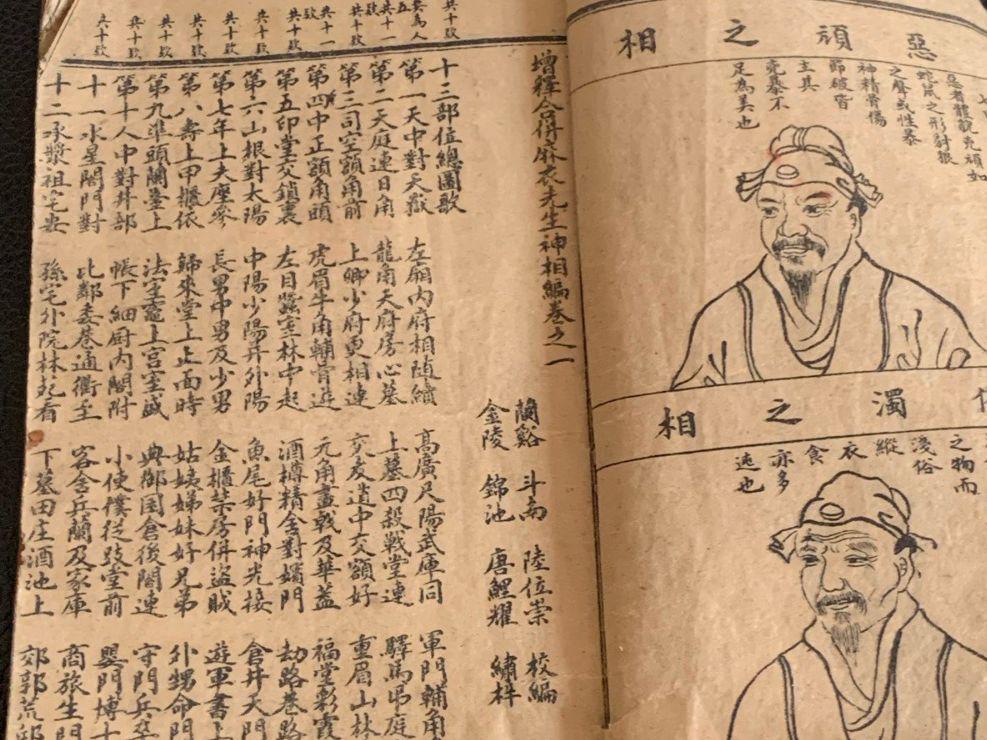 惡頑之相
惡者體貌兇頑如
蛇鼠之形豺狼
之聲或性暴
神精骨傷
節破皆
主其
兇暴不
足爲美也
濁之相
之物而
淺俗
縱
衣
食
亦多
迍也
增釋合併麻衣先生神相編卷之一
蘭谿 斗南 陸位崇 校編
金陵 錦池 唐鯉耀 繡梓
十三部位總圖歌
第一天中對天嶽 左廂內府相随續 高廣尺陽武庫同 軍門輔角
第二天庭連日角 龍角天府房心墓 上墓四殺戰堂連 驛馬吊庭
第三司空額角前 上卿少府更相連 交友道中交額好 重眉山林
第四中正額角頭 虎眉牛角輔骨遊 元角畫戟及華蓋 福堂彩霞
第五印堂交鎖裏 左目蠶室林中起 酒樽精舍對嬪門 劫路巷路
第六山根對太陽 中陽少陽并外陽 魚尾奸門神光接 倉井天門
第七年上夫座參 長男中男及少男 金櫃禁房併盜賊 遊軍書上
第八壽上甲櫃依 歸來堂上正面時 姑姨姊妹好兄弟 外甥命門
第九準頭蘭臺上 法令竈上宮室盛 典御囯倉後閣連 守門兵卒
第十人中對井部 帳下細廚內閣附 小使僕從妓堂前 嬰門博士
十一水星閣門對 比鄰委巷通衢至 客舍兵蘭及家庫 商旅生門
十二承漿祖宅安 孫宅外院林苑看 下墓田庄酒池上 郊郭荒邱
共十玫
共十玫
共十玫
共十玫
共十玫
共十玫